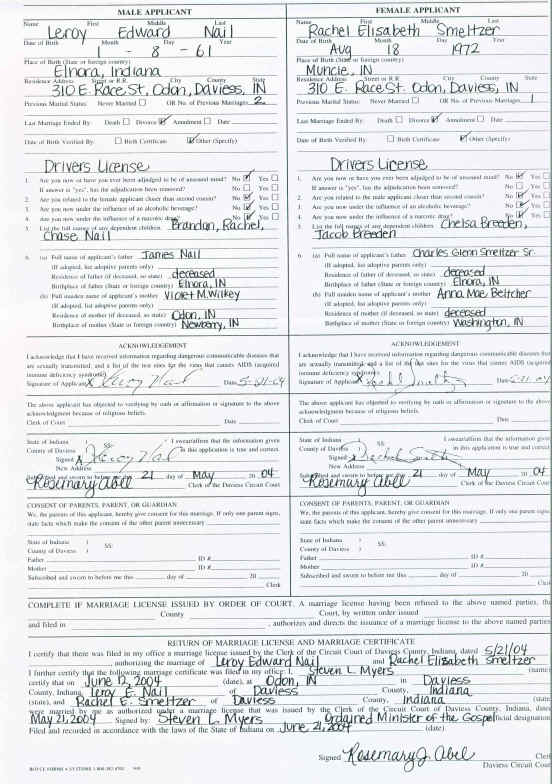 MALE APPLICANT
Name First Middle Last
Leroy Edward Nail
Date of Birth Month Day Year
1 - 8 - 61
Place of Birth (State or foreign country)
Elnora, Indiana
Residence Address Street or R.R. City County State
310 E. Race St, Odon, Daviess, IN
Previous Marital Status: Never Married ☐ OR No. of Previous Marriages 2
Last Marriage Ended By: Death ☐ Divorce ☑ Annulment ☐ Date
Date of Birth Verified By: ☐ Birth Certificate ☑ Other (Specify)
Drivers License
1. Are you now or have you ever been adjudged to be of unsound mind? No ☑ Yes ☐
If answer is "yes", has the adjudication been removed? No ☐ Yes ☐
2. Are you related to the female applicant closer than second cousin? No ☑ Yes ☐
3. Are you now under the influence of an alcoholic beverage? No ☑ Yes ☐
4. Are you now under the influence of a narcotic drug? No ☑ Yes ☐
5. List the full names of any dependent children Brandon, Rachel,
Chase Nail
6. (a) Full name of applicant's father James Nail
(If adopted, list adoptive parents only)
Residence of father (if deceased, so state) deceased
Birthplace of father (State or foreign country) Elnora, IN
(b) Full maiden name of applicant's mother Violet M. Wilkey
(If adopted, list adoptive parents only)
Residence of mother (if deceased, so state) Odon, IN
Birthplace of mother (State or foreign country) Newberry, IN
ACKNOWLEDGEMENT
I acknowledge that I have received information regarding dangerous communicable diseases that
are sexually transmitted, and a list of the test sites for the virus that causes AIDS (acquired
immune deficiency syndrome)
Signature of Applicant X Leroy Nail Date 5-21-04
The above applicant has objected to verifying by oath or affirmation or signature to the above
acknowledgment because of religious beliefs.
Clerk of Court Date
State of Indiana ) I swear/affirm that the information given
County of Daviess ) SS: in this application is true and correct.
Signed X Leroy Nail
New Address
Subscribed and sworn to before me this 21 day of May 20 04
Rosemary Abel Clerk of the Daviess Circuit Court
CONSENT OF PARENTS, PARENT, OR GUARDIAN
We, the parents of this applicant, hereby give consent for this marriage. If only one parent signs,
state facts which make the consent of the other parent unnecessary
State of Indiana )
County of Daviess ) SS:
Father ID #
Mother ID #
Subscribed and sworn to before me this day of 20
Clerk
FEMALE APPLICANT
Name First Middle Last
Rachel Elisabeth Smeltzer
Date of Birth Month Day Year
Aug 18 1972
Place of Birth (State or foreign country)
Muncie, IN
Residence Address Street or R.R. City County State
310 E. Race St. Odon, Daviess, IN
Previous Marital Status: Never Married ☐ OR No. of Previous Marriages 1
Last Marriage Ended By: Death ☐ Divorce ☑ Annulment ☐ Date
Date of Birth Verified By: ☐ Birth Certificate ☑ Other (Specify)
Drivers License
1. Are you now or have you ever been adjudged to be of unsound mind? No ☑ Yes ☐
If answer is "yes", has the adjudication been removed? No ☐ Yes ☐
2. Are you related to the male applicant closer than second cousin? No ☑ Yes ☐
3. Are you now under the influence of an alcoholic beverage? No ☑ Yes ☐
4. Are you now under the influence of a narcotic drug? No ☑ Yes ☐
5. List the full names of any dependent children Chelsa Breeden,
Jacob Breeden
6. (a) Full name of applicant's father Charles Glenn Smeltzer Sr.
(If adopted, list adoptive parents only)
Residence of father (if deceased, so state) deceased
Birthplace of father (State or foreign country) Elnora, IN
(b) Full maiden name of applicant's mother Anna Mae Beltcher
(If adopted, list adoptive parents only)
Residence of mother (if deceased, so state) deceased
Birthplace of mother (State or foreign country) Washington, IN
ACKNOWLEDGEMENT
I acknowledge that I have received information regarding dangerous communicable diseases that
are sexually transmitted, and a list of the test sites for the virus that causes AIDS (acquired
immune deficiency syndrome)
Signature of Applicant X Date 5-21-04
The above applicant has objected to verifying by oath or affirmation or signature to the above
acknowledgment because of religious beliefs.
Clerk of Court Date
State of Indiana ) I swear/affirm that the information given
County of Daviess ) SS: in this application is true and correct
Signed
New Address
Subscribed and sworn to before me this 21 day of May 20 04
Rosemary Abel Clerk of the Daviess Circuit Court
CONSENT OF PARENTS, PARENT, OR GUARDIAN
We, the parents of this applicant, hereby give consent for this marriage. If only one parent signs,
state facts which make the consent of the other parent unnecessary
State of Indiana )
County of Daviess ) SS:
Father ID #
Mother ID #
Subscribed and sworn to before me this day of 20
Clerk
COMPLETE IF MARRIAGE LICENSE ISSUED BY ORDER OF COURT. A marriage license having been refused to the above named parties, the
County Court, by written order issued
and filed in , authorizes and directs the issuance of a marriage license to the above named parties
RETURN OF MARRIAGE LICENSE AND MARRIAGE CERTIFICATE
I certify that there was filed in my office a marriage license issued by the Clerk of the Circuit Court of Daviess County, Indiana, dated 5/21/04
authorizing the marriage of Leroy Edward Nail and Rachel Elizabeth Smeltzer
I further certify that the following marriage certificate was filed in my office: I, Steven L. Myers (name)
certify that on June 12, 2004 (date), at Odon, IN in Daviess
County, Indiana, Leroy E. Nail of Daviess County, Indiana
(state), and Rachel E. Smeltzer of Daviess County, Indiana (state
were married by me as authorized under a marriage license that was issued by the Clerk of the Circuit Court of Daviess County, Indiana, dated
May 21, 2004 Signed by: Steven L. Myers Ordained Minister of the Gospel (official designation)
Filed and recorded in accordance with the laws of the State of Indiana on June 21, 2004 (date)
Signed Rosemary J. Abel Clerk
Daviess Circuit Court